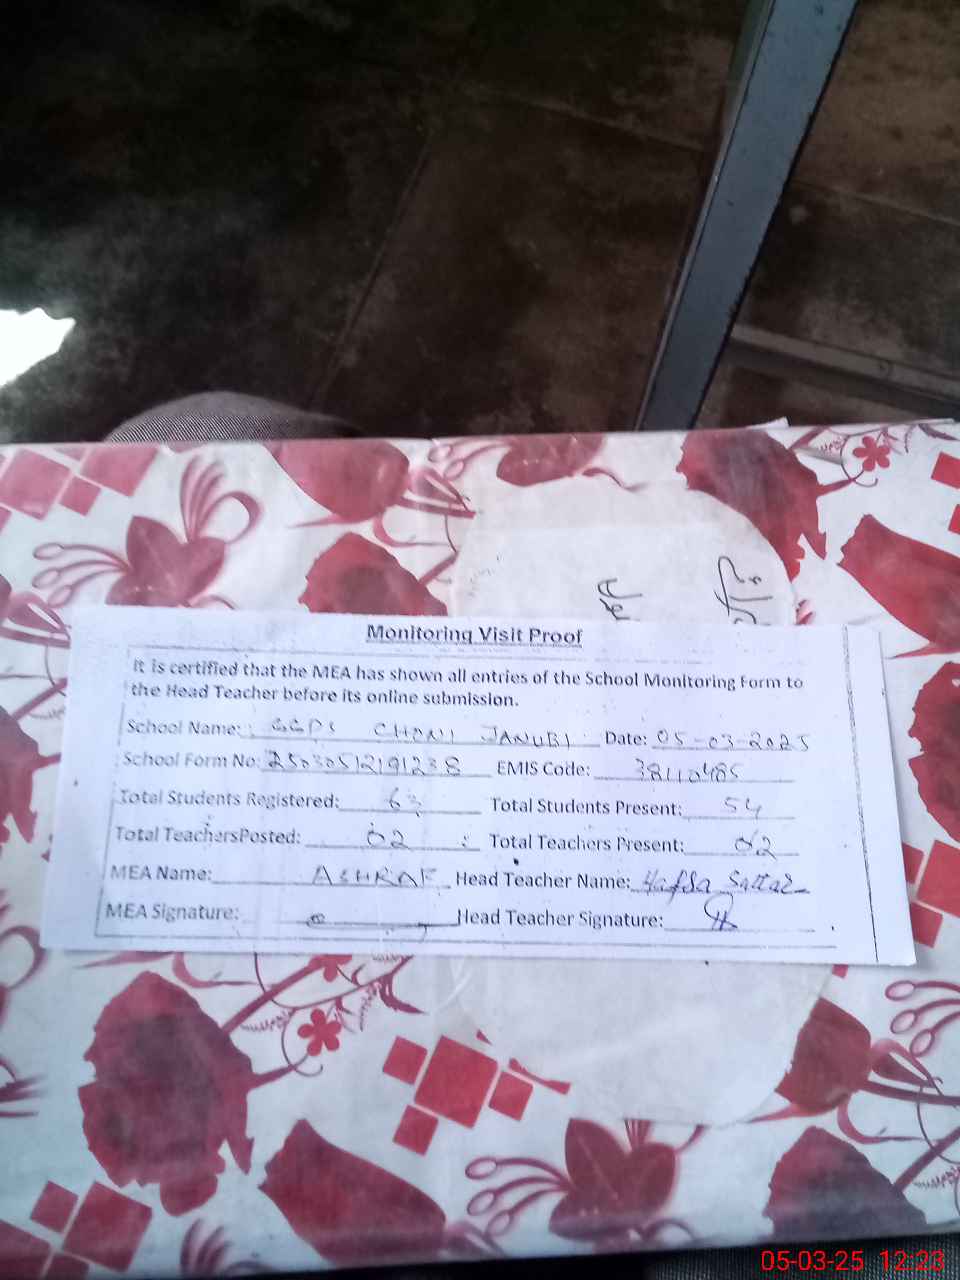 Monitoring Visit Proof
It is certified that the MEA has shown all entries of the School Monitoring Form to
the Head Teacher before its online submission.
School Name: GGPS CHONI JANUBI Date: 05-03-2025
School Form No: 25030512191238 EMIS Code: 38110485
Total Students Registered: 63 Total Students Present: 54
Total TeachersPosted: 02 Total Teachers Present: 02
MEA Name: ASHRAF Head Teacher Name: Hafsa Sattar
MEA Signature: Head Teacher Signature:
05-03-25 12:23